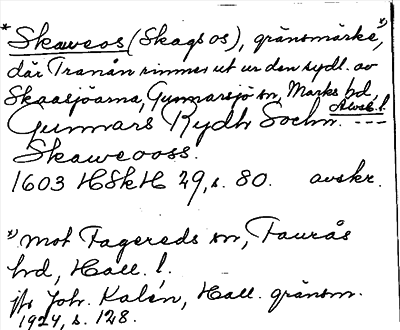 * Skaweos (Skags os), gränsmärke *),
där Tranån rinner ut ur den sydl. av
Skaasjöarna, Gunnarsjö sn, Marks hd,
Älvsb. l.
Gunnars Rydh Sochn. ---
Skaweooss.
1603 HSkH 29, s. 80. avskr.
*) mot Fagereds sn, Faurås
hd, Hall. l.
jfr Joh. Kalén, Hall. gränsm.
1924, s. 128.